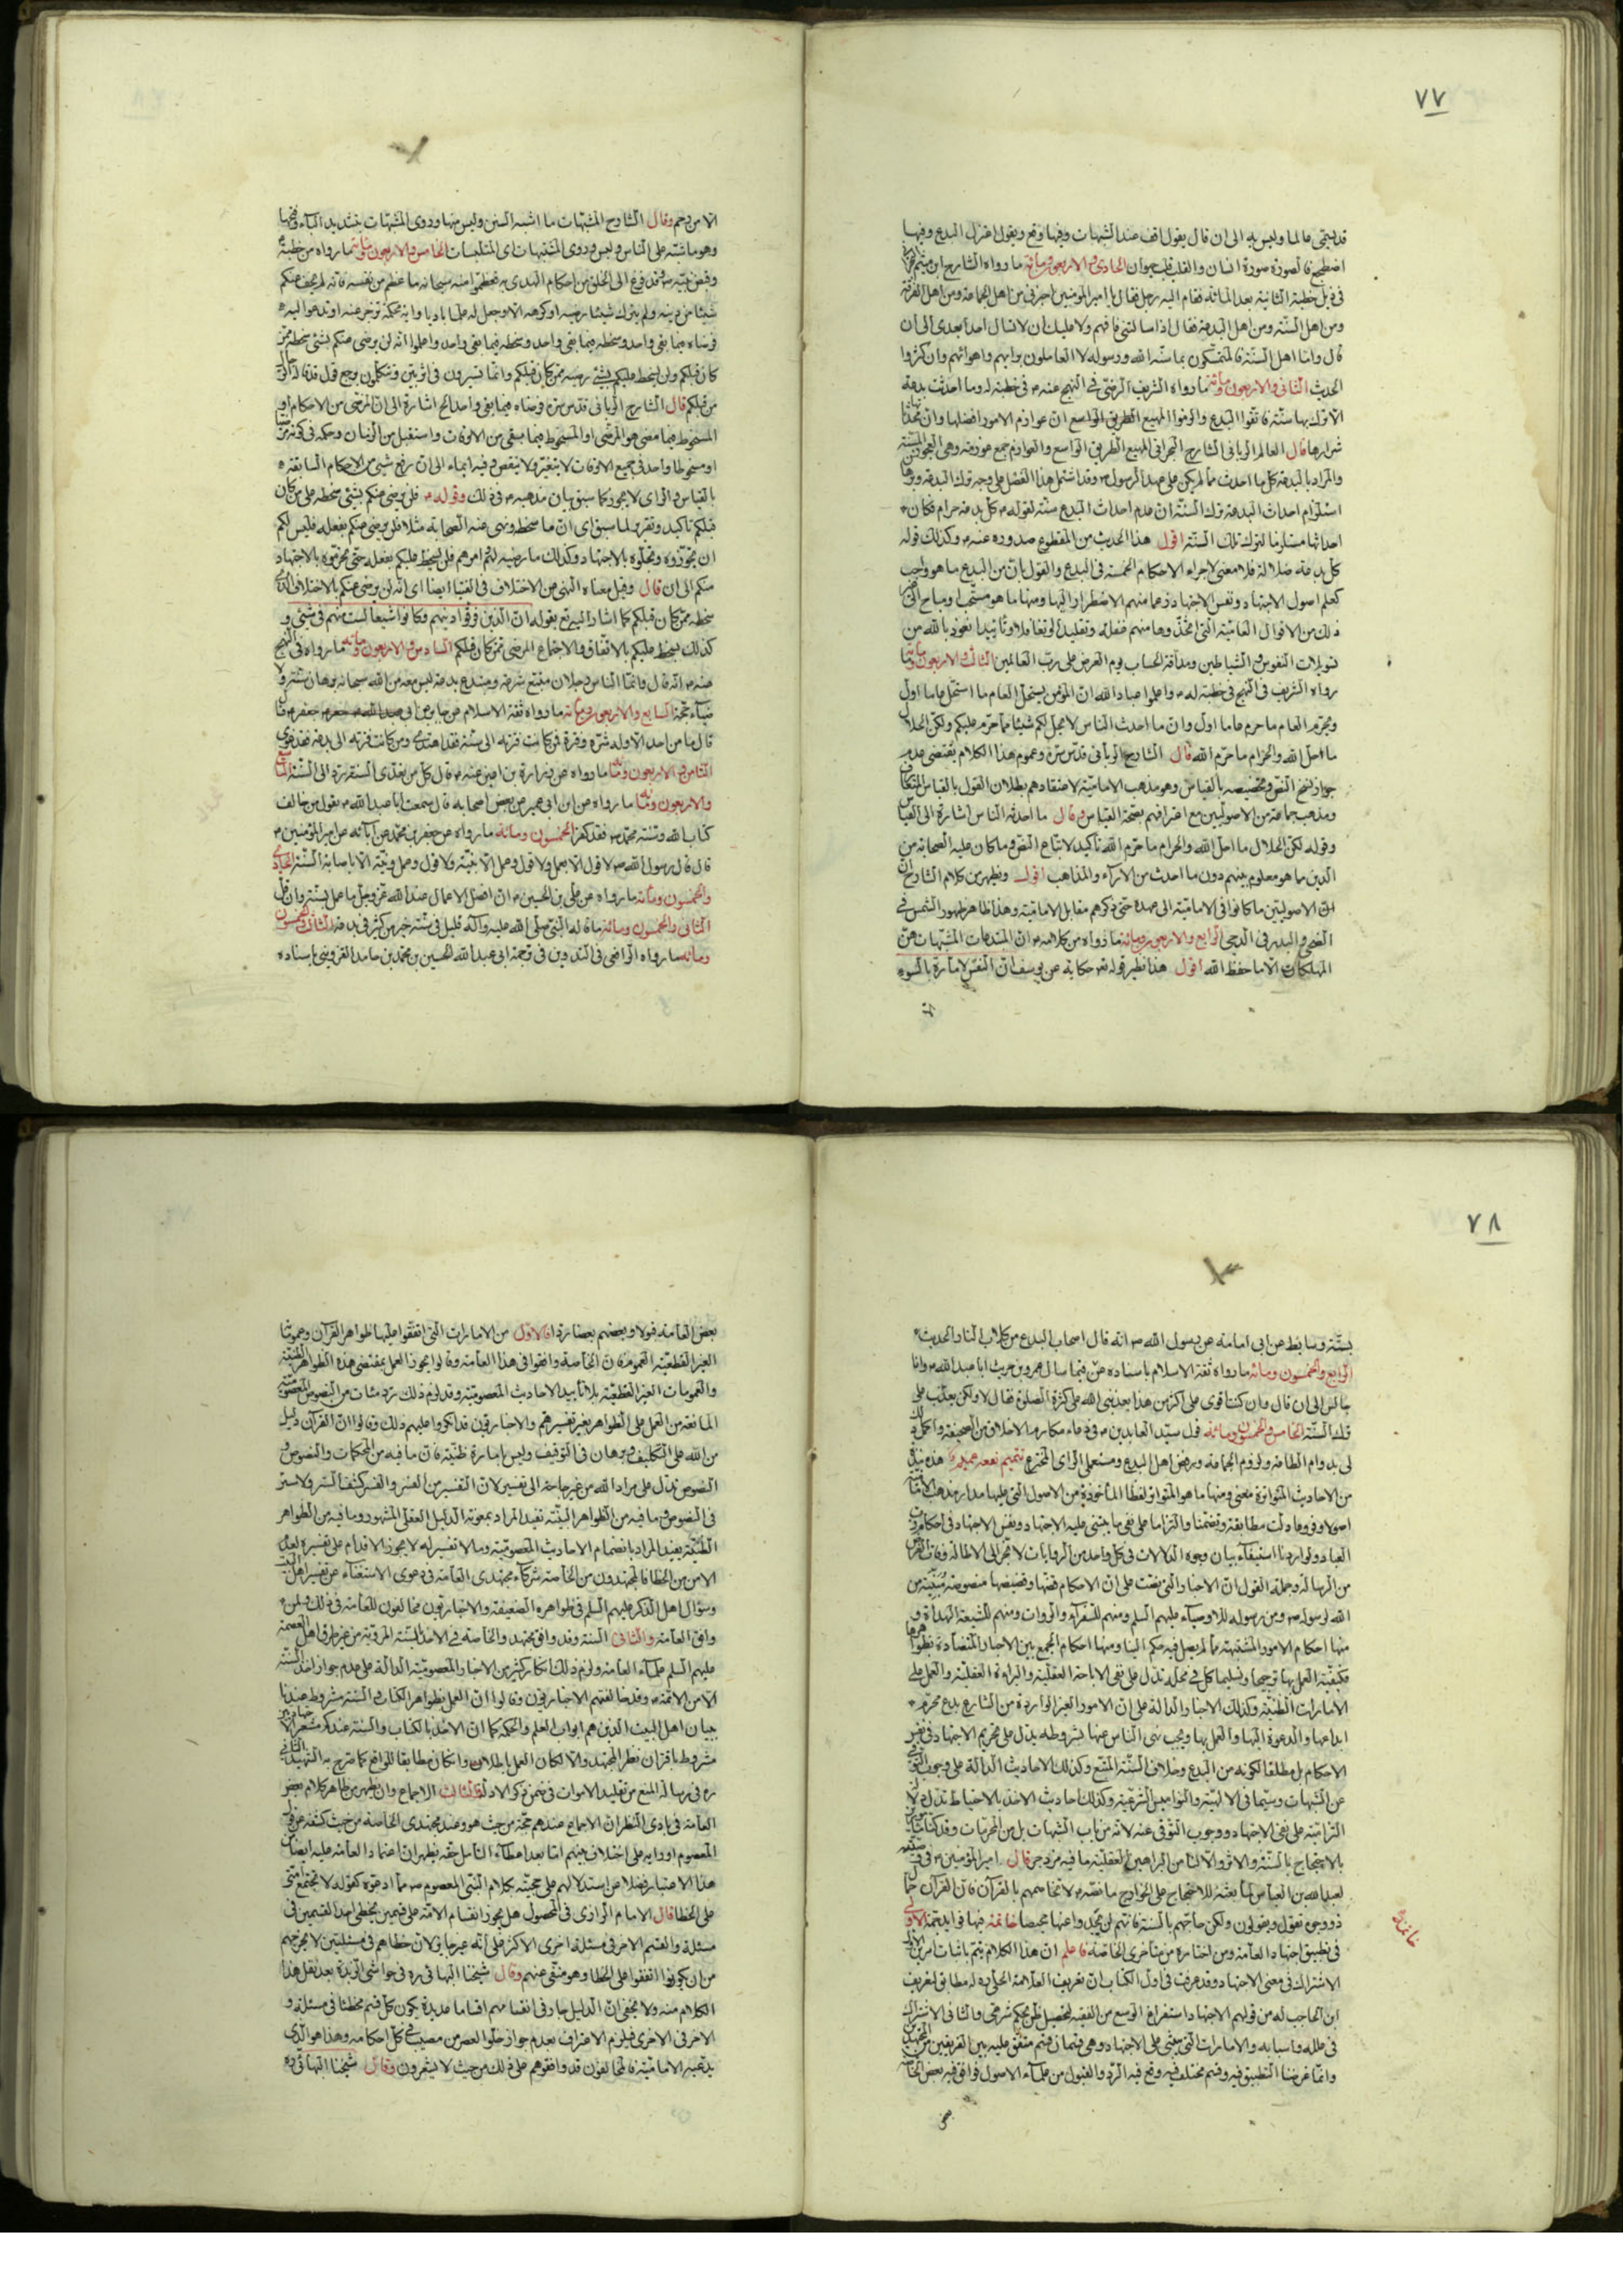 ٧٧
قد سمى عالما وليس به الى ان قال يقول اقف عند الشبهات وفيها وقع ويقول اعتزل البدع وفيها
اضطجع فالصورة صورة انسان والقلب قلب حيوان الحادى والاربعون ومائة ما رواه الشارح ابن ميثم
فى ذيل خطبة الثانية بعد المائة فقام اليه رجل فقال يا امير المؤمنين اخبرنى من اهل الجماعة ومن اهل الفرقة
ومن اهل السنّة ومن اهل البدعة فقال اذا سالتنى فافهم ولا عليك ان لا تسال احدا بعدى الى ان
قال وامّا اهل السنّة فالمتمسّكون بما سنّه الله ورسوله لا العاملون برايهم واهوائهم وان كثروا
الحديث الثانى والاربعون ومائة ما رواه الشريف الرضى فى النهج عنه فى خطبة له وما احدثت بدعة
الّا ترك بها سنّة فاتقوا البدع والزموا المهيع الطريق الواسع ان عوازم الامور افضلها وانّ محدثاتها
شرارها قال العالم الربانى الشارح البحرانى المهيع الطريق الواسع والعوازم جمع عوزمة وهى العجوز
والمراد بالبدعة كل ما احدث مما لم يكن على عهد الرسول وقد اشتمل هذا الفصل على وجه ترك البدعة
استلزام احداث البدعة ترك السنّة ان عدم احداث البدع سنّة لقوله كل بدعة حرام فكان
احداثها مستلزما لترك تلك السنّة اقول هذا الحديث من المقطوع صدوره عنه وكذلك قوله
كل بدعة ضلالة فلا معنى لاجراء الاحكام الخمسة فى البدع والقول بانّ من البدع ما هو واجب
كعلم اصول الاجتهاد ونفس الاجتهاد زعما منهم الاضطرار اليها ومنها ما هو مستحب او مباح الى
ذلك من الاقوال العامّية التى اتخذوها منهم غفلة وتقليدا لو تغافلا وتأييدا نعوذ بالله من
تسويلات النفوس والشياطين ومداقة الحساب يوم العرض على رب العالمين الثالث والاربعون ومائة ما
رواه الشريف فى النهج فى خطبة له واعلموا عباد الله ان المؤمن يستحلّ العام ما استحلّ عاما اول
ويحرّم العام ما حرم عاما اول وانّ ما احدث الناس لا يحلّ لكم شيئا مما حرّم عليكم ولكن الحلال
ما احلّ الله والحرام ما حرّم الله قال الشارح الربانى قدس سره وعموم هذا الكلام يقتضى عدم
جواز نسخ النص وتخصيصه بالقياس وهو مذهب الامامية لاعتقادهم بطلان القول بالقياس
ومذهب جماعة من الاصوليين مع اعترافهم بصحة القياس وقال ما احدثه الناس اشارة الى القياس
وقوله لكن الحلال ما احلّ الله والحرام ما حرّم الله تأكيد لاتباع النص وما كان عليه الصحابة من
الدين ما هو معلوم بينهم دون ما احدث من الآراء والمذاهب اقول ويظهر من كلام الشارح انّ
الاصوليين ما كانوا فى الامامية الى عهده حتى ذكرهم مقابل الامامية وهذا ظاهر ظهور الشمس فى
الضحى والبدر فى الدجى الرابع والاربعون ومائة ما رواه من كلامه انّ المبتدعات المشبّهات هنّ
المهلكات الّا ما حفظ الله اقول هذا نظير قوله تعه حكاية عن يوسف انّ النفس لامارة بالسوء
الّا ما رحم وقال الشارح المشبّهات ما اشبه السنن وليس منها وروى المشبّهات بتشديد الباء وفتحها
وهو ما شبّه على الناس وليس وروى المشتبهات اى الملتبسات الخامس والاربعون ومائة ما رواه من خطبة
وقبض نبيّه وقد فرغ الى الخلق من احكام الهدى به فعظّموا منه سبحانه ما عظم من نفسه فانّه لم يخف عنكم
شيئا من دينه ولم يترك شيئا رضيه او كرهه الا وجعل له علما باديا وآية محكمة تزجر عنه او تدعو اليه
فرضاه فيما بقى واحد وسخطه فيما بقى واحد واعلموا انّه لن يرضى عنكم بشئ سخطه على من
كان قبلكم ولن يسخط عليكم بشئ رضيه ممن كان قبلكم وانّما تسيرون فى اثر بيّن وتتكلمون برجع قول قد قاله الرجال
من قبلكم قال الشارح الربانى قدس سره فرضاه فيما بقى واحد الخ اشارة الى ان المرضى من الاحكام او
المسخوط فيما مضى هو المرضى او المسخوط فيما بقى من الاوقات واستقبل من الزمان وحكمه فى كونه مرضيا
او مسخوطا واحد فى جميع الاوقات لا يتغير ولا ينقض وفيه ايماء الى ان رفع شئ من الاحكام السابقة
بالقياس والراى لا يجوز كما سبق بيان مذهبه فى ذلك وقوله فلن يرضى عنكم بشئ سخطه على من كان
قبلكم تاكيد وتقرير لما سبق اى انّ ما سخطه ونهى عنه الصحابة مثلا فلن يرضى عنكم بفعله فليس لكم
ان تجوّزوه وتحلّوه بالاجتهاد وكذلك ما رضيه لهم وامرهم فلن يسخط عليكم بفعله حتى تحرّموه بالاجتهاد
منكم الى ان قال وقيل معناه النهى عن الاختلاف فى الفتيا ايضا اى انّه لن يرضى عنكم بالاختلاف الذى
سخطه ممن كان قبلكم كما اشار اليه تع بقوله انّ الذين فرقوا دينهم وكانوا شيعا لست منهم فى شئ و
كذلك لن يسخط عليكم بالاتفاق والاجتماع المرضى ممن كان قبلكم السادس والاربعون ومائة ما رواه فى النهج
عنه انّه قال وانّما الناس رجلان متبع شرعة ومبتدع بدعة ليس معه من الله سبحانه برهان سنّة ولا
ضياء حجّة السابع والاربعون ومائة ما رواه ثقة الاسلام عن جابر عن ابى جعفر
قال ما من احد الّا وله شرّة وفترة فمن كانت فترته الى سنّة فقد اهتدى ومن كانت فترته الى بدعة فقد غوى
الثامن والاربعون ومائة ما رواه عن زرارة بن اعين عنه قال كل من تعدّى السنّة ردّ الى السنّة التاسع
والاربعون ومائة ما رواه عن ابن ابى عمير عن بعض اصحابه قال سمعت ابا عبد الله يقول من خالف
كتاب الله وسنّة محمد فقد كفر الخمسون ومائة ما رواه عن جعفر بن محمد عن آبائه عن امير المؤمنين
قال قال رسول الله لا قول الّا بعمل ولا قول وعمل الّا بنيّة ولا قول وعمل ونيّة الّا باصابة السنّة الحادى
والخمسون ومائة ما رواه عن على بن الحسين انّ افضل الاعمال عند الله عزّ وجلّ ما عمل بسنّة وان قلّ
الثانى والخمسون ومائة ما قاله النبى صلى الله عليه وآله قليل فى سنّة خير من كثير فى بدعة الثالث والخمسون
ومائة ما رواه الرافعى فى التدوين فى ترجمة ابى عبد الله الحسين بن محمد بن حامد القزوينى باسناده
٧٨
بسنّة وسابط عن ابى امامة عن رسول الله انه قال اصحاب البدع من كلاب النار الحديث
الرابع والخمسون ومائة ما رواه ثقة الاسلام باسناده عن فيما سال عمرو بن حريث ابا عبد الله وانا
جالس الى ان قال وان كنت اقوى على اكثر من هذا يعذبنى الله على كثرة الصلوة فقال لا ولكن يعذب على
ترك السنّة الخامس والخمسون ومائة قول سيّد العابدين فى دعاء مكارم الاخلاق من الصحيفة واكمل ذلك
لى بدوام الطاعة ولزوم الجماعة ورفض اهل البدع ومستعملى الراى المخترع تتميم نفعه عميم هذه نبذة
من الاحاديث المتواترة معنى ومنها ما هو المتواتر لفظا الماخوذة من الاصول التى عليها مدار مذهب الامامية
اصولا وفروعا دلت مطابقة وتضمنا والتزاما على نفى ما يبتنى عليه الاجتهاد ونفس الاجتهاد فى احكام رب
العباد ولو اردنا استيفاء بيان وجوه الدلالات فى كل واحد من الروايات لانجرّ الى الاطالة وفات الغرض
من الرسالة وجملة القول انّ الاخبار التى نصت على انّ الاحكام قضّها وقضيضها منصوصة مبيّنة من
الله لرسوله ومن رسوله للاوصياء عليهم السلم ومنهم للسفراء والروات ومنهم للشيعة الهداة و
منها احكام الامور المشتبهة مما لم يصل فيه حكم الينا ومنها احكام الجمع بين الاخبار المتضادة
فكيفية العمل بها ترجيحا وتسليما كل فى محلّه تدل على نفى الاباحة العقلية والبراءة العقلية والعمل على
الامارات الظنّية وكذلك الاخبار الدالة على انّ الامور الغير الواردة من الشارع بدع محرّم
ابداعها والدعوة اليها والعمل بها ويجب نهى الناس عنها بشروطه يدل على تحريم الاجتهاد فى نفس
الاحكام بل مطلقا لكونه من البدع وخلاف السنّة المتبع وكذلك الاحاديث الدالة على وجوب التوقف
عن الشبهات وسيّما فى الالهية والنواميس الشرعية وكذلك احاديث الاخذ بالاحتياط تدل دلالة
التزامية على نفى الاجتهاد ووجوب التوقى عنه لانّه من باب الشبهات بل من المحرمات وقد كفانا
بالاحتجاج بالسنّة والاثر والّا لنا من البراهين العقلية ما فيه مزدجر قال امير المؤمنين فى وصيّته
لعبد الله بن العباس لمّا بعثه للاحتجاج على الخوارج ما نصّه لا تخاصمهم بالقرآن فانّ القرآن حمّال
ذو وجوه تقول ويقولون ولكن حاجّهم بالسنّة فانّهم لن يجدوا عنها محيصا خاتمة فيها فوائد مهمة الاولى
خاتمة
فى تطبيق اجتهاد العامّة ومن اختاره من متأخرى الخاصّة فاعلم انّ هذا الكلام يتمّ باثبات امرين الاول
الاشتراك فى معنى الاجتهاد وقد عرفت فى اول الكتاب انّ تعريف العلامة الحلّى له مطابق لتعريف
ابن الحاجب له من قولهم الاجتهاد استفراغ الوسع من الفقيه لتحصيل ظن بحكم شرعى والثانى الاشتراك
فى علله واسبابه والامارات التى يبتنى على الاجتهاد وهى قسمان قسم متفق عليه بين الفريقين من المجتهدين
وانّما غرضنا التطبيق فيه وقسم مختلف فيه وقع فيه الرد والقبول من علماء الاصول فوافق فيه بعض الخاصّة
بعض العامّة قولا وبعضهم بعضا ردا فالاول من الامارات التى اتفقوا عليها ظواهر القرآن وعموماتها
الغير القطعيّة العموم فانّ الخاصّة وافقوا فى هذا العامّة وقالوا يجوز العمل بمقتضى هذه الظواهر الظنّية
والعمومات الغير القطعيّة بلا تاييد الاحاديث المعصوميّة وقد لزم ذلك ردّ مئات من النصوص المعصوميّة
المانعة من العمل على الظواهر بغير تفسيرهم والاخباريون قد انكروا عليهم ذلك وقالوا انّ القرآن دليل
من الله على التكليف وبرهان فى التوقيف وليس بامارة ظنّية فانّ ما فيه من المحكمات والنصوص و
النصوص تدل على مراد الله من غير حاجة الى تفسير لانّ التفسير من الفسر والفسر كشف الستر ولا ستر
فى النصوص وما فيه من الظواهر البيّنة تفيد المراد بمعونة الدليل العقلى المشهور وما فيه من الظواهر
الظنّية يفيد المراد بانضمام الاحاديث المعصوميّة وما لا تفسير له لا يجوز الاقدام على تفسيره لعدم
الامن من الخطا فالمجتهدون من الخاصّة شركاء مجتهدى العامّة فى دعوى الاستغناء عن تفسير اهل البيت
وسؤال اهل الذكر عليهم السلم فى ظواهره الضعيفة والاخباريون مخالفون للعامّة فى ذلك ولمن
وافق العامّة والثانى السنّة وقد وافق مجتهد والخاصّة فى الاخذ بالسنّة المرويّة من غير طرق اهل العصمة
عليهم السلم علماء العامّة ولزم ذلك انكار كثير من الاخبار المعصوميّة الدالة على عدم جواز اخذ السنّة
الّا من الائمّة وقد خالفهم الاخباريون وقالوا انّ العمل بظواهر الكتاب والسنّة مشروط عندنا
ببيان اهل البيت الذين هم ابواب العلم والحكمة كما انّ الاخذ بالكتاب والسنّة عندكم
مشروط باقتران نظر المجتهد والّا لكان العمل باطلا وان كان مطابقا للواقع كما صرح به الشهيد الثانى
ره فى رسالة المنع من تقليد الاموات فى ضمن ذكر الادلة والثالث الاجماع وان يظهر من ظاهر كلام بعض
العامّة فى بادى النظر انّ الاجماع عندهم حجّة من حيث هو وعند مجتهدى الخاصّة من حيث كشفه عن قول
المعصوم او رايه على اختلاف بينهم امّا بعد اعطاء التأمل حقّه يظهر انّ اعتماد العامّة عليه ايضا من
هذا الاعتبار فضلا عن استدلالهم على حجيّته بكلام النبى المعصوم مما ادعوه كقوله لا تجتمع امتى
على الخطا قال الامام الرازى فى المحصول هل يجوز انقسام الامّة على قسمين يخطى احد القسمين فى
مسئلة والقسم الاخر فى مسئلة اخرى الاكثر على انّه غير جايز لانّ خطاهم فى مسئلتين لا يخرجهم
من ان يكونوا اتفقوا على الخطا وهو منفى عنهم وقال شيخنا البهائى ره فى حواشى الزبدة بعد نقل هذا
الكلام منه ولا يخفى انّ الدليل جار فى انقسامهم اقساما عديدة يكون كل قسم مخطئا فى مسئلة و
الاخر فى الاخرى فيلزم الاعتراف بعدم جواز خلوّ العصر من مصيب فى كل احكامه وهذا هو الذى
يدّعيه الامامية فالمخالفون قد وافقوهم على ذلك من حيث لا يشعرون وقال شيخنا البهائى ره